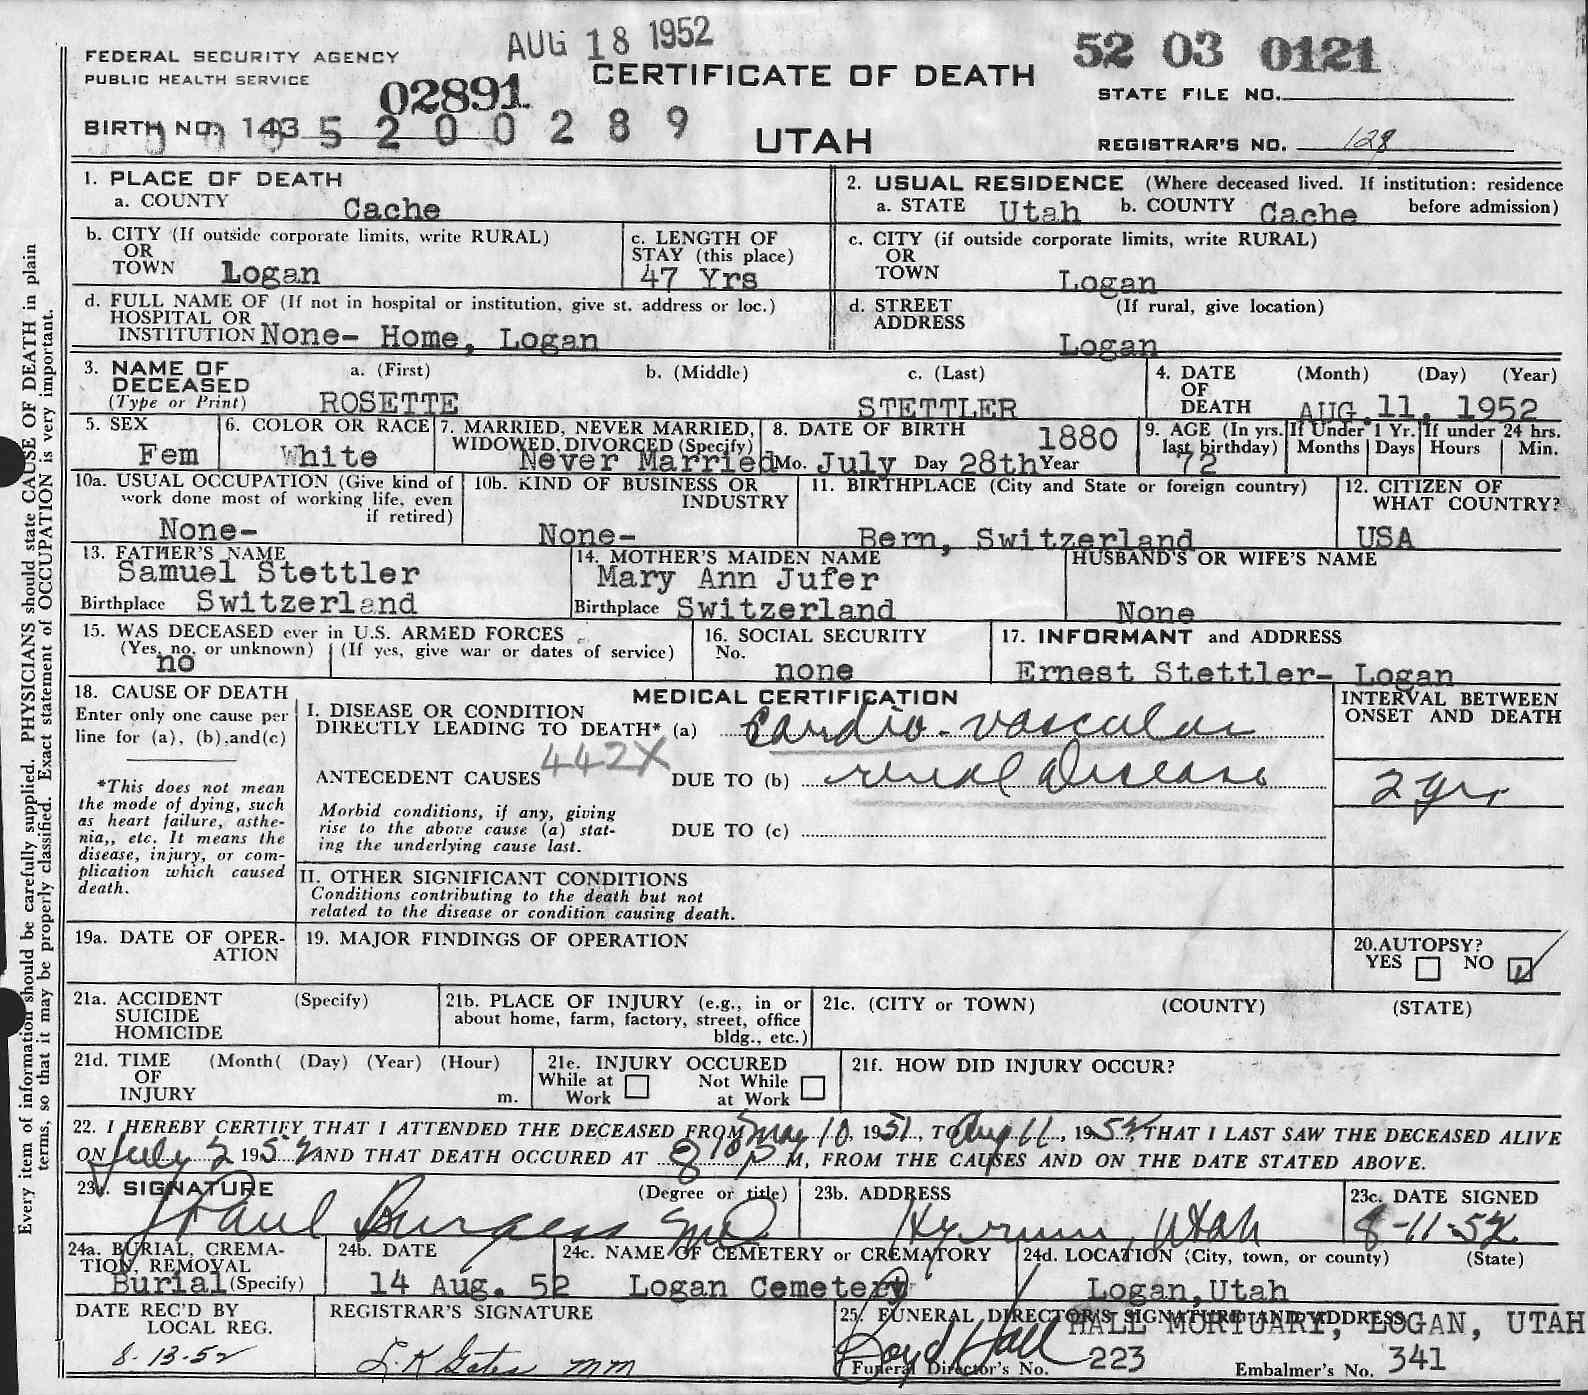 AUG 18 1952
52 03 0121
FEDERAL SECURITY AGENCY
PUBLIC HEALTH SERVICE
CERTIFICATE OF DEATH
STATE FILE NO.
02891
BIRTH NO. 143 5 2 0 0 2 8 9
UTAH
REGISTRAR'S NO. 128
1. PLACE OF DEATH
a. COUNTY Cache
2. USUAL RESIDENCE (Where deceased lived. If institution: residence before admission)
a. STATE Utah b. COUNTY Cache
b. CITY (If outside corporate limits, write RURAL)
OR
TOWN Logan
c. LENGTH OF
STAY (this place)
47 Yrs
c. CITY (if outside corporate limits, write RURAL)
OR
TOWN Logan
d. FULL NAME OF (If not in hospital or institution, give st. address or loc.)
HOSPITAL OR
INSTITUTION None- Home, Logan
d. STREET (If rural, give location)
ADDRESS
Logan
3. NAME OF a. (First) b. (Middle) c. (Last)
DECEASED
(Type or Print) ROSETTE STETTLER
4. DATE (Month) (Day) (Year)
OF
DEATH AUG. 11, 1952
5. SEX
Fem
6. COLOR OR RACE
White
7. MARRIED, NEVER MARRIED,
WIDOWED, DIVORCED (Specify)
Never Married
8. DATE OF BIRTH 1880
Mo. July Day 28th Year
9. AGE (In yrs. last birthday) 72
If Under 1 Yr. Months Days
If under 24 hrs. Hours Min.
10a. USUAL OCCUPATION (Give kind of
work done most of working life, even
if retired)
None-
10b. KIND OF BUSINESS OR
INDUSTRY
None-
11. BIRTHPLACE (City and State or foreign country)
Bern, Switzerland
12. CITIZEN OF
WHAT COUNTRY?
USA
13. FATHER'S NAME
Samuel Stettler
Birthplace Switzerland
14. MOTHER'S MAIDEN NAME
Mary Ann Jufer
Birthplace Switzerland
HUSBAND'S OR WIFE'S NAME
None
15. WAS DECEASED ever in U.S. ARMED FORCES
(Yes, no, or unknown) (If yes, give war or dates of service)
no
16. SOCIAL SECURITY
No.
none
17. INFORMANT and ADDRESS
Ernest Stettler- Logan
18. CAUSE OF DEATH
Enter only one cause per
line for (a), (b),and(c)
*This does not mean
the mode of dying, such
as heart failure, asthe-
nia,, etc. It means the
disease, injury, or com-
plication which caused
death.
MEDICAL CERTIFICATION
I. DISEASE OR CONDITION
DIRECTLY LEADING TO DEATH* (a) Cardio-vascular
442X
ANTECEDENT CAUSES DUE TO (b) renal disease
Morbid conditions, if any, giving
rise to the above cause (a) stat-
ing the underlying cause last.
DUE TO (c)
INTERVAL BETWEEN
ONSET AND DEATH
2 yrs
II. OTHER SIGNIFICANT CONDITIONS
Conditions contributing to the death but not
related to the disease or condition causing death.
19a. DATE OF OPER-
ATION
19. MAJOR FINDINGS OF OPERATION
20.AUTOPSY?
YES NO
21a. ACCIDENT (Specify)
SUICIDE
HOMICIDE
21b. PLACE OF INJURY (e.g., in or
about home, farm, factory, street, office
bldg., etc.)
21c. (CITY or TOWN) (COUNTY) (STATE)
21d. TIME (Month( (Day) (Year) (Hour)
OF
INJURY m.
21e. INJURY OCCURED
While at Work Not While at Work
21f. HOW DID INJURY OCCUR?
22. I HEREBY CERTIFY THAT I ATTENDED THE DECEASED FROM May 10, 1951, TO Aug 11, 1952, THAT I LAST SAW THE DECEASED ALIVE
ON July 2 1952 AND THAT DEATH OCCURED AT 8 10 P M, FROM THE CAUSES AND ON THE DATE STATED ABOVE.
23a. SIGNATURE (Degree or title)
J Paul Burgess MD
23b. ADDRESS
Hyrum, Utah
23c. DATE SIGNED
8-11-52
24a. BURIAL, CREMA-
TION, REMOVAL
Burial (Specify)
24b. DATE
14 Aug. 52
24c. NAME OF CEMETERY or CREMATORY
Logan Cemetery
24d. LOCATION (City, town, or county) (State)
Logan,Utah
DATE REC'D BY
LOCAL REG.
8-13-52
REGISTRAR'S SIGNATURE
25. FUNERAL DIRECTOR'S SIGNATURE AND ADDRESS
HALL MORTUARY, LOGAN, UTAH
Boyd Hall
Funeral Director's No. 223 Embalmer's No. 341
Every item of information should be carefully supplied. PHYSICIANS should state CAUSE OF DEATH in plain
terms, so that it may be properly classified. Exact statement of OCCUPATION is very important.